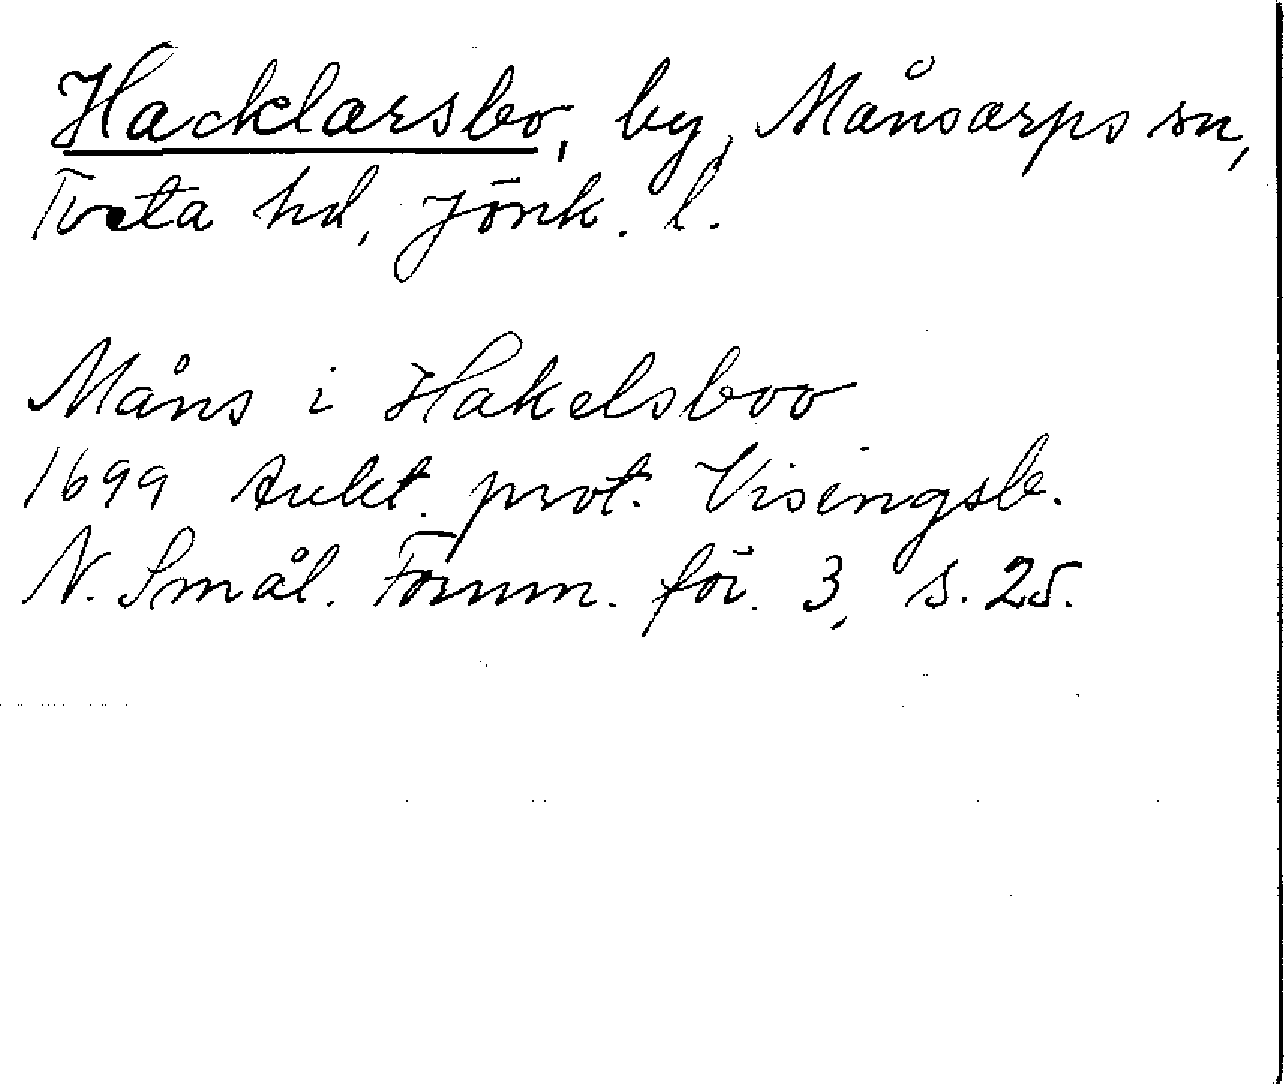 Hacklarsbo, by, Månsarps sn,
Tveta hd, Jönk. l.
Måns i Hakelsboo
1699 Aukt. prot. Visingsb.
N. Smål. Fornm. för. 3, s. 25.